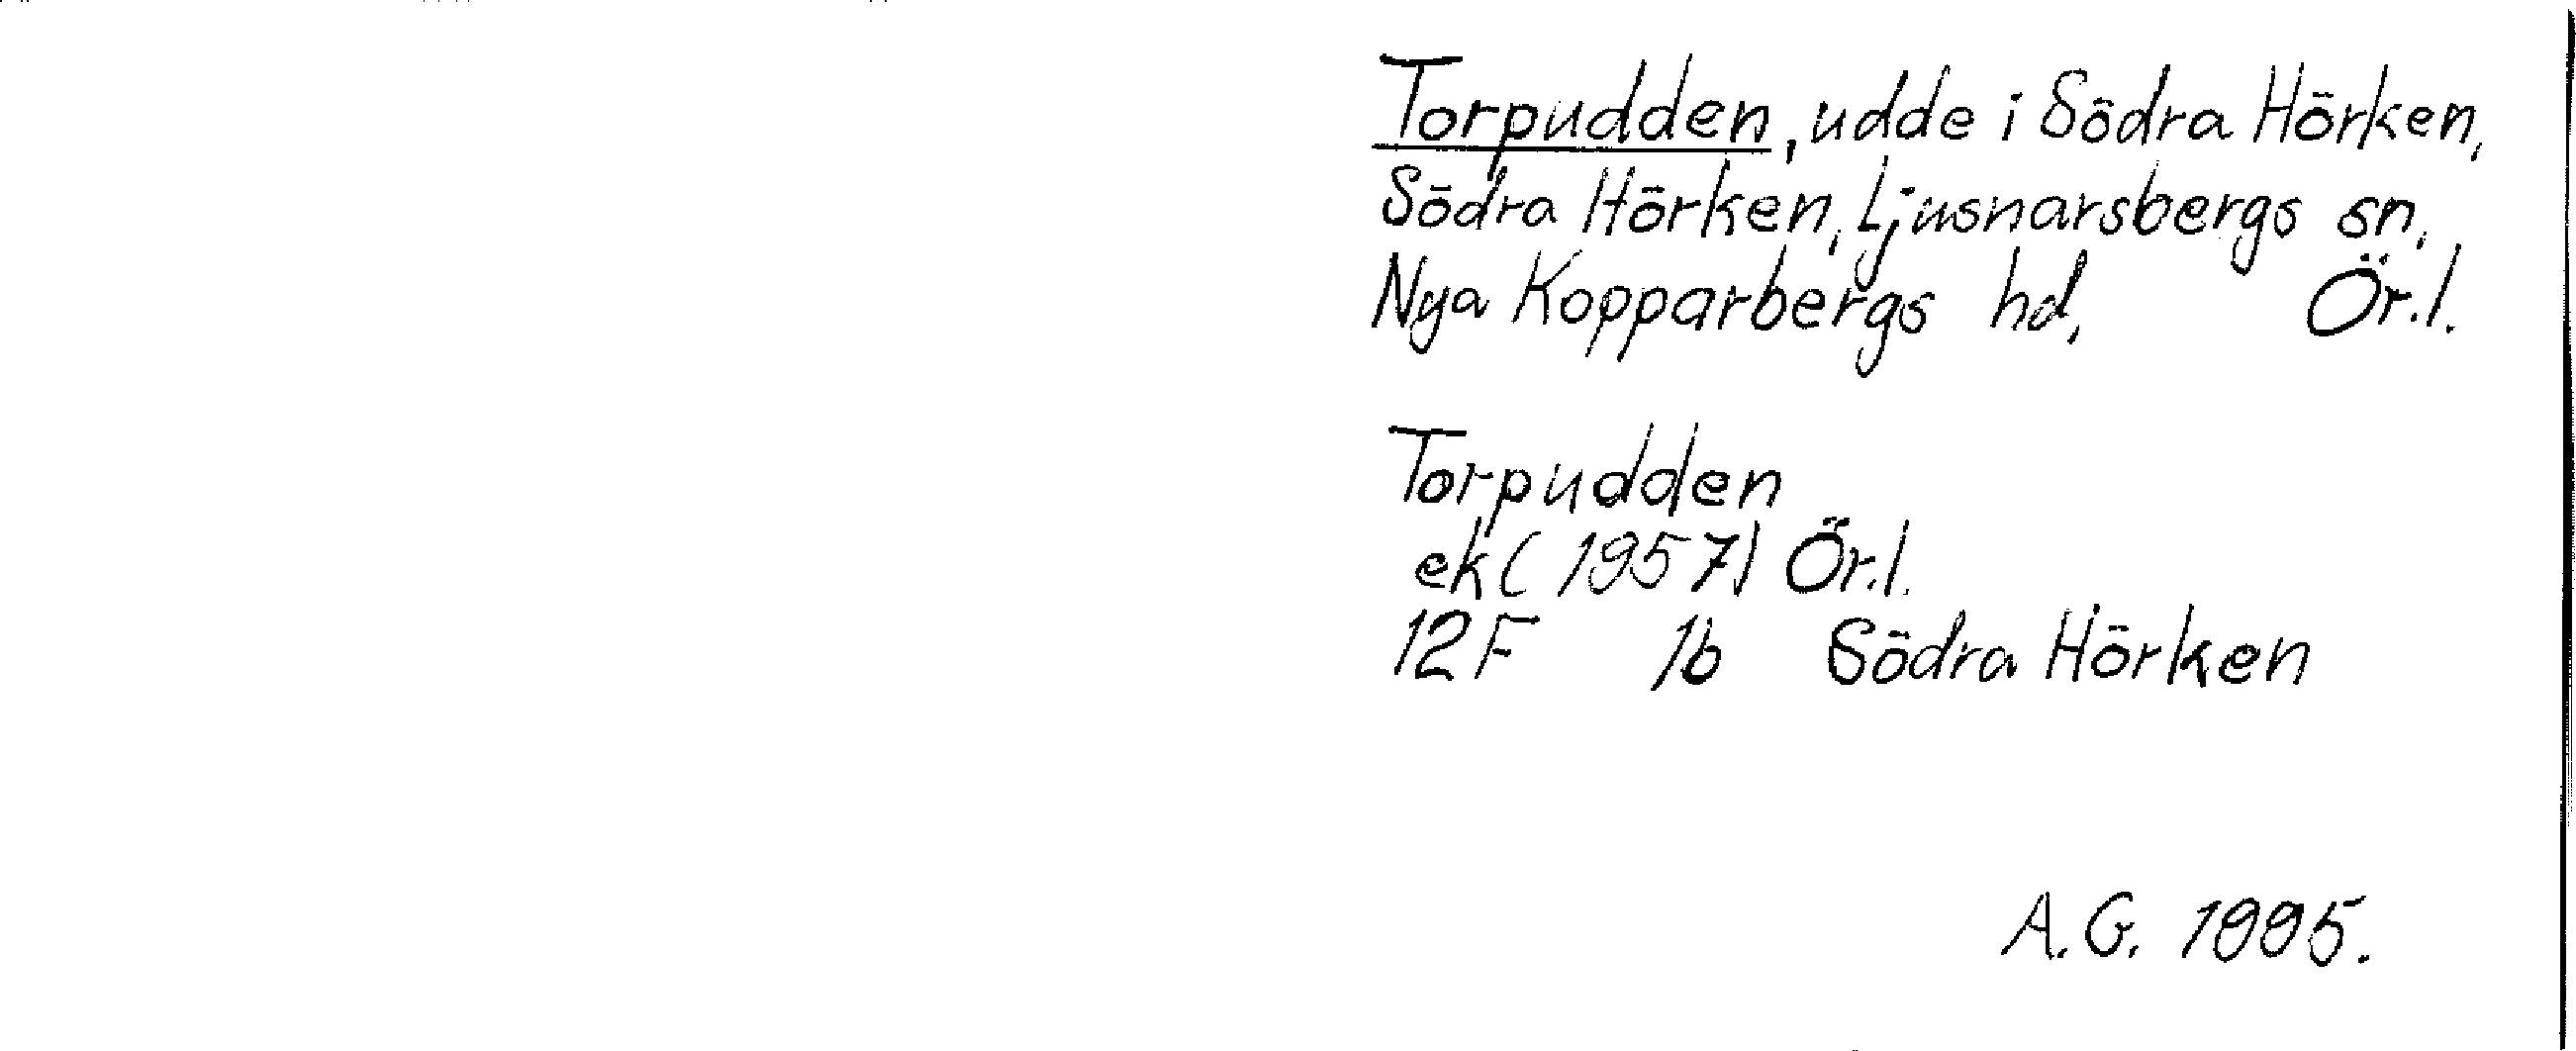 Torpudden, udde i Södra Hörken,
Södra Hörken, Ljusnarsbergs sn,
Nya Kopparbergs hd, Ör.l.
Torpudden
ek (1957) Ör.l.
12F 1b Södra Hörken
A.G. 1995.